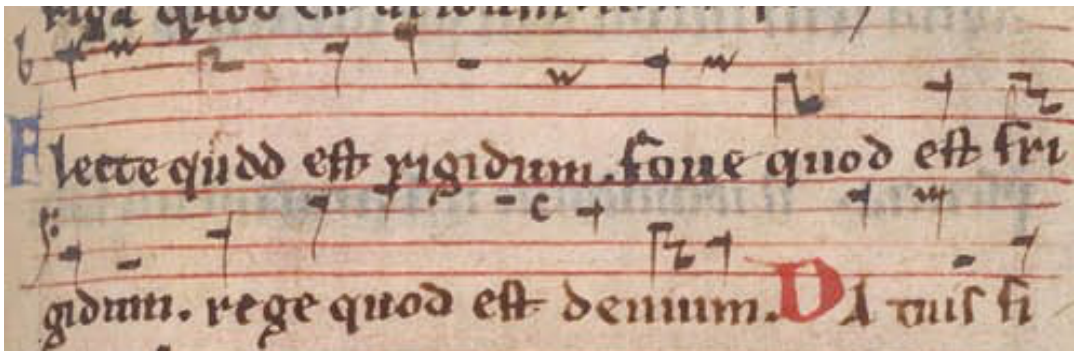 riga quod est
Flecte quod est rigidum. foue quod est fri
gidum. rege quod est deuium. Da tuis fi